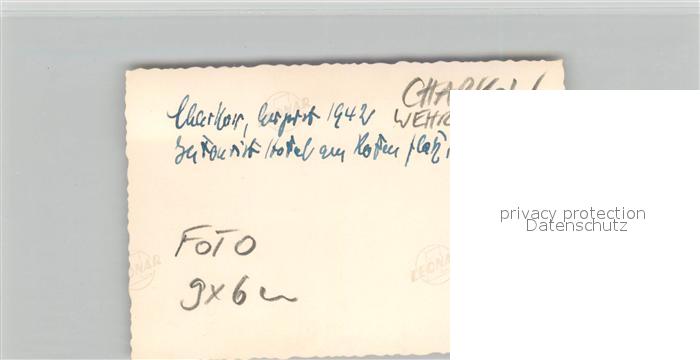 CHARKOW
Charkow, August 1942
WEHR
Intourist Hotel am Roten Platz
privacy protection
Datenschutz
FOTO
9x6
LEONAR
LEONAR
LEONAR